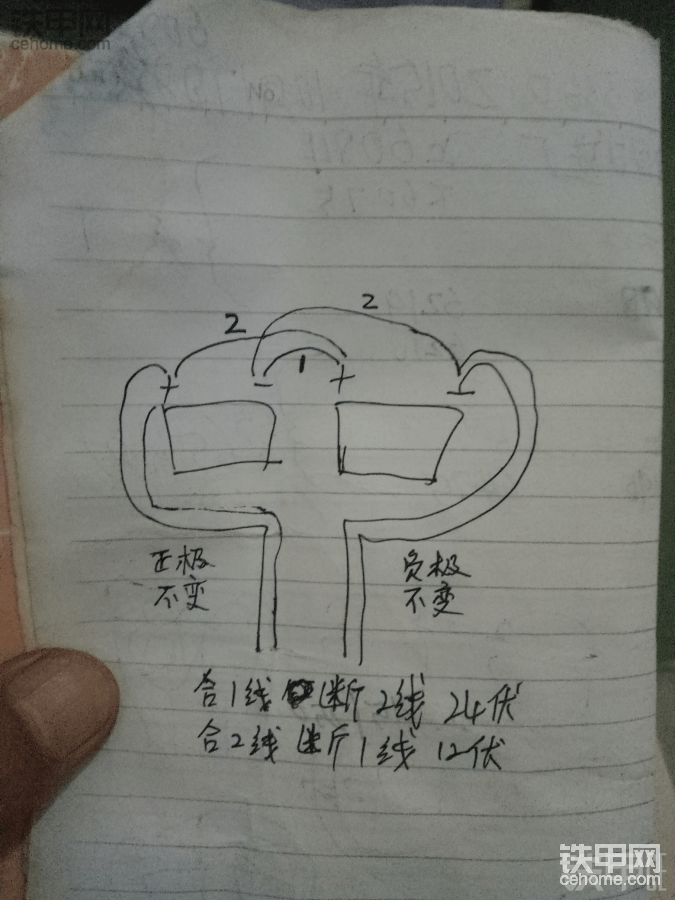 铁甲网
cehome.com
2
2
1
+ − + −
正极
不变
负极
不变
合1线 断2线 24伏
合2线 断1线 12伏
铁甲网
cehome.com